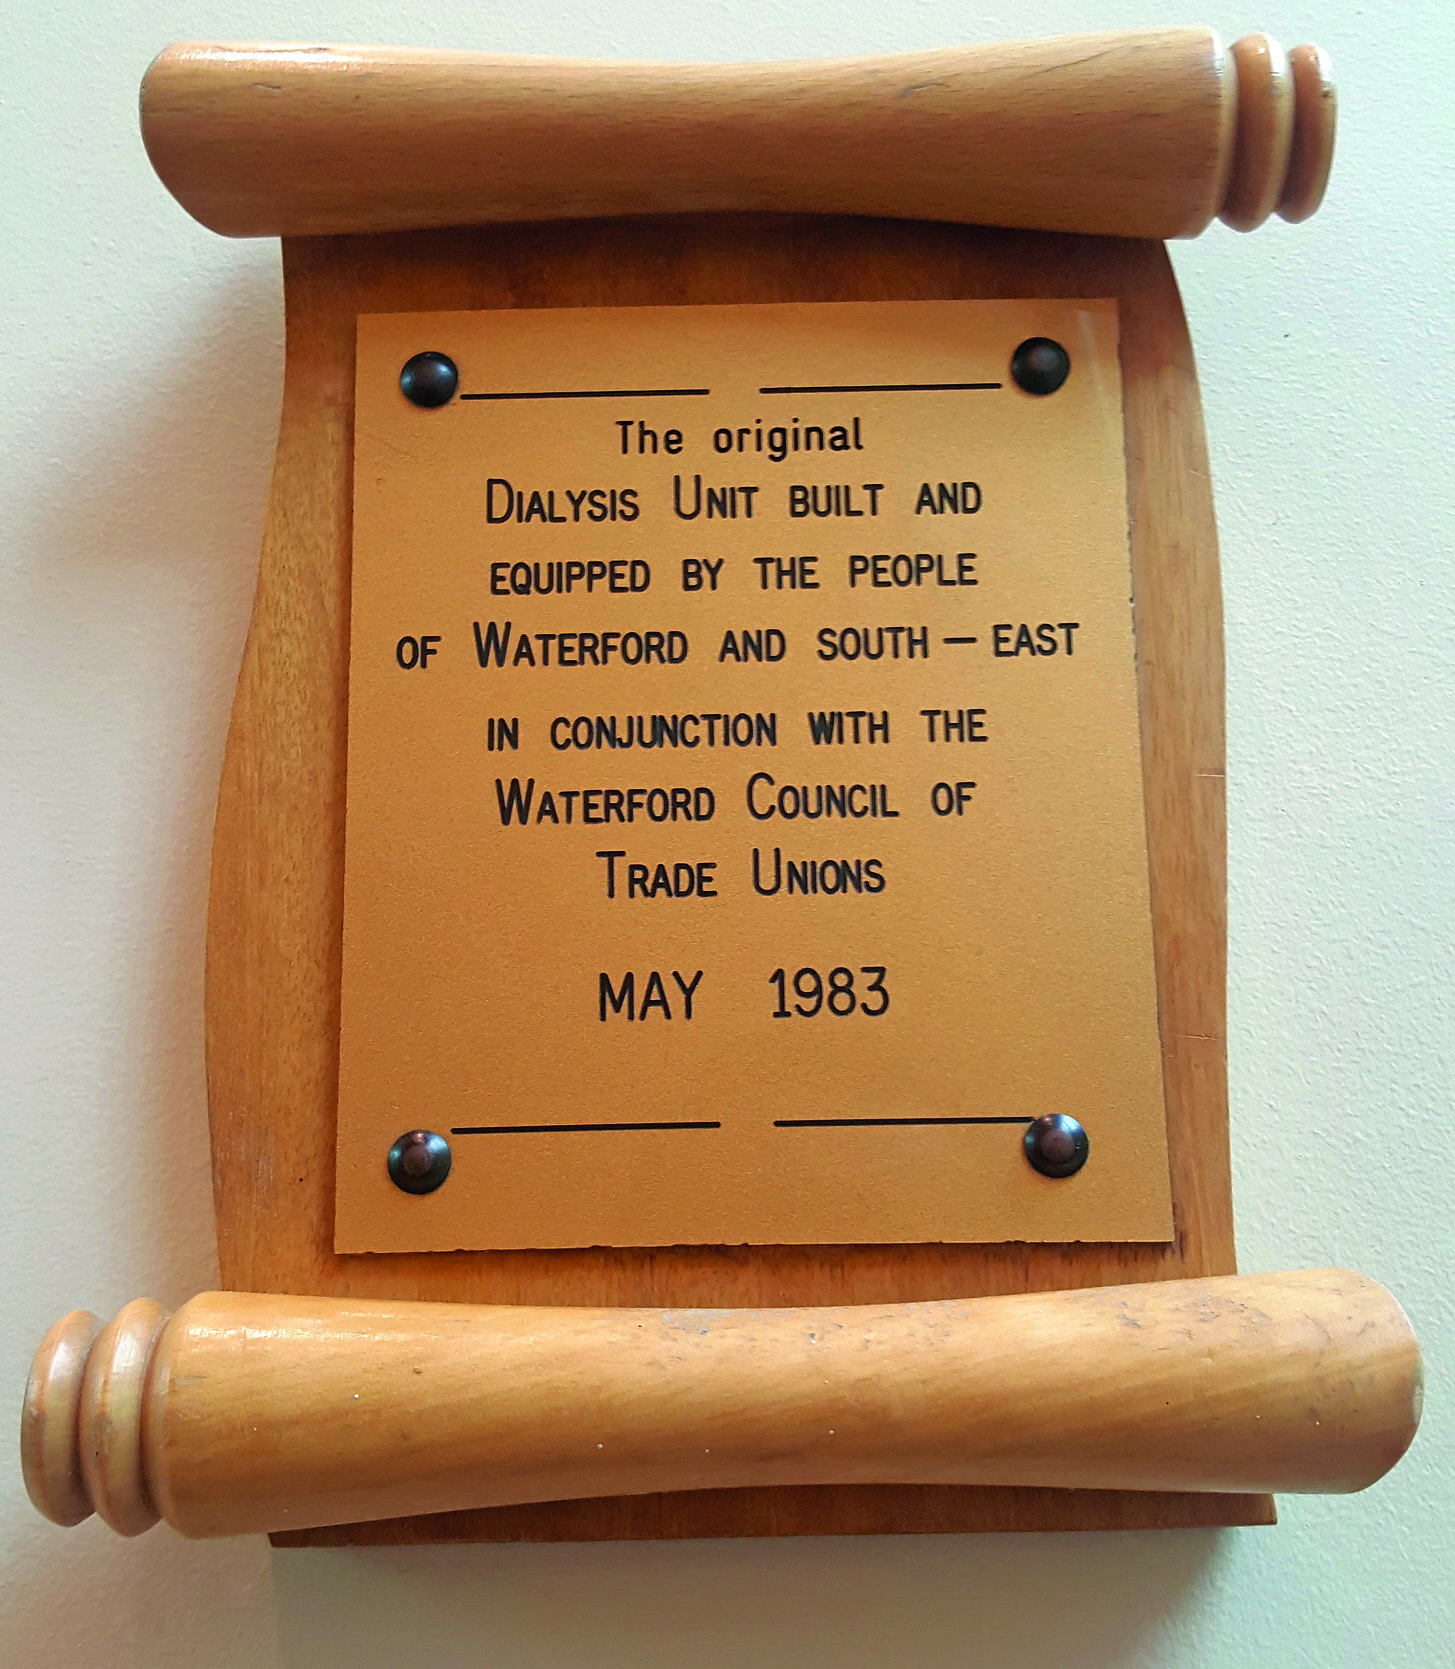 The original
DIALYSIS UNIT BUILT AND
EQUIPPED BY THE PEOPLE
OF WATERFORD AND SOUTH — EAST
IN CONJUNCTION WITH THE
WATERFORD COUNCIL OF
TRADE UNIONS
MAY 1983